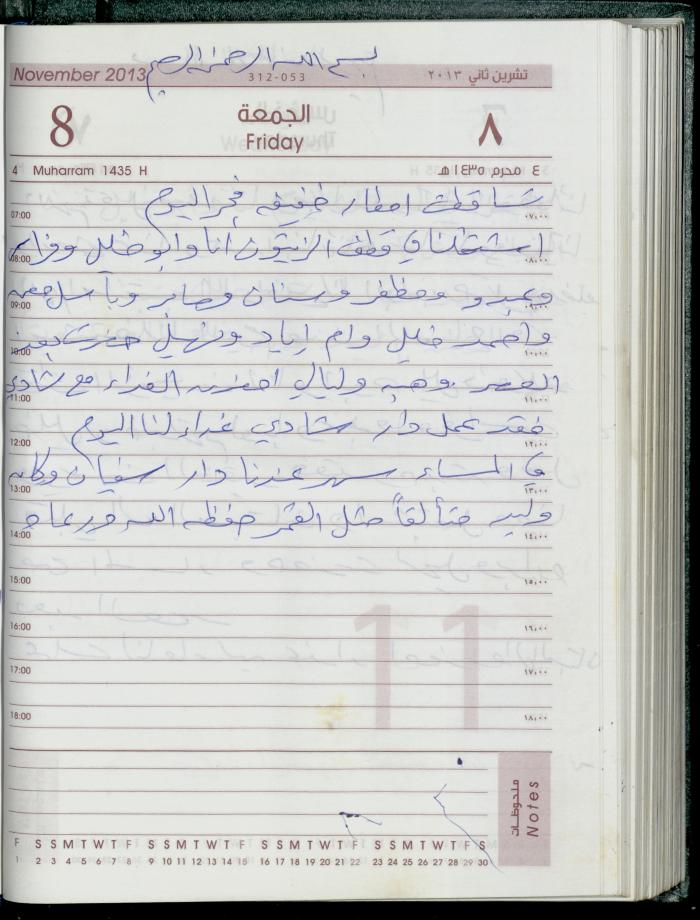 بسم الله الرحمن الرحيم
November 2013
312-053
تشرين ثاني ٢٠١٣
8
الجمعة
Friday
٨
4 Muharram 1435 H
٤ محرم ١٤٣٥ هـ
تساقطت امطار خفيفة فجر اليوم
07:00 ٠٧:٠٠
اشتغلنا في قطف الزيتون انا وابو خليل وفراس
08:00 ٠٨:٠٠
وعبدو ومظفر وسنان وصابر وباسل جمعه
09:00 ٠٩:٠٠
واحمد خليل وام إياد ونهيل حضرت بعد
10:00 ١٠:٠٠
العصر وهبه وليالي احضرن الغداء مع شادي
11:00 ١١:٠٠
فقد عمل دار شادي غداء لنا اليوم
12:00 ١٢:٠٠
في المساء سهر عندنا دار سفيان وكان
13:00 ١٣:٠٠
وليد متألقاً مثل القمر حفظه الله ورعاه
14:00 ١٤:٠٠
15:00 ١٥:٠٠
16:00 ١٦:٠٠
17:00 ١٧:٠٠
18:00 ١٨:٠٠
11
ملحوظات
Notes
F S S M T W T F S S M T W T F S S M T W T F S S M T W T F S
1 2 3 4 5 6 7 8 9 10 11 12 13 14 15 16 17 18 19 20 21 22 23 24 25 26 27 28 29 30